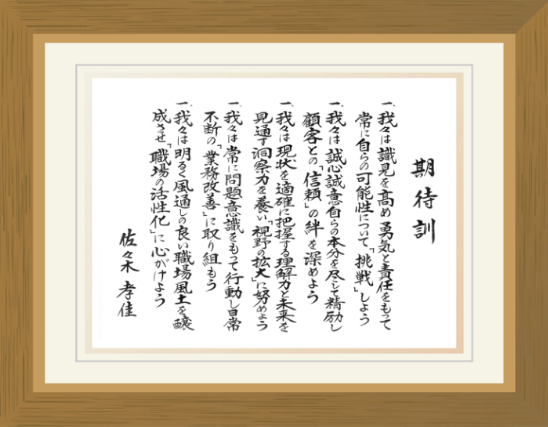 期待訓
一、我々は識見を高め勇気と責任をもって
常に自らの可能性について、「挑戦」しよう
一、我々は誠心誠意自らの本分を尽して精励し
顧客との「信頼」の絆を深めよう
一、我々は現状を適確に把握する理解力と未来を
見通す洞察力を養い「視野の拡大」に努めよう
一、我々は常に問題意識をもって行動し日常
不断の「業務改善」に取り組もう
一、我々は明るく風通しの良い職場風土を醸
成させ「職場の活性化」に心がけよう
佐々木 孝佳